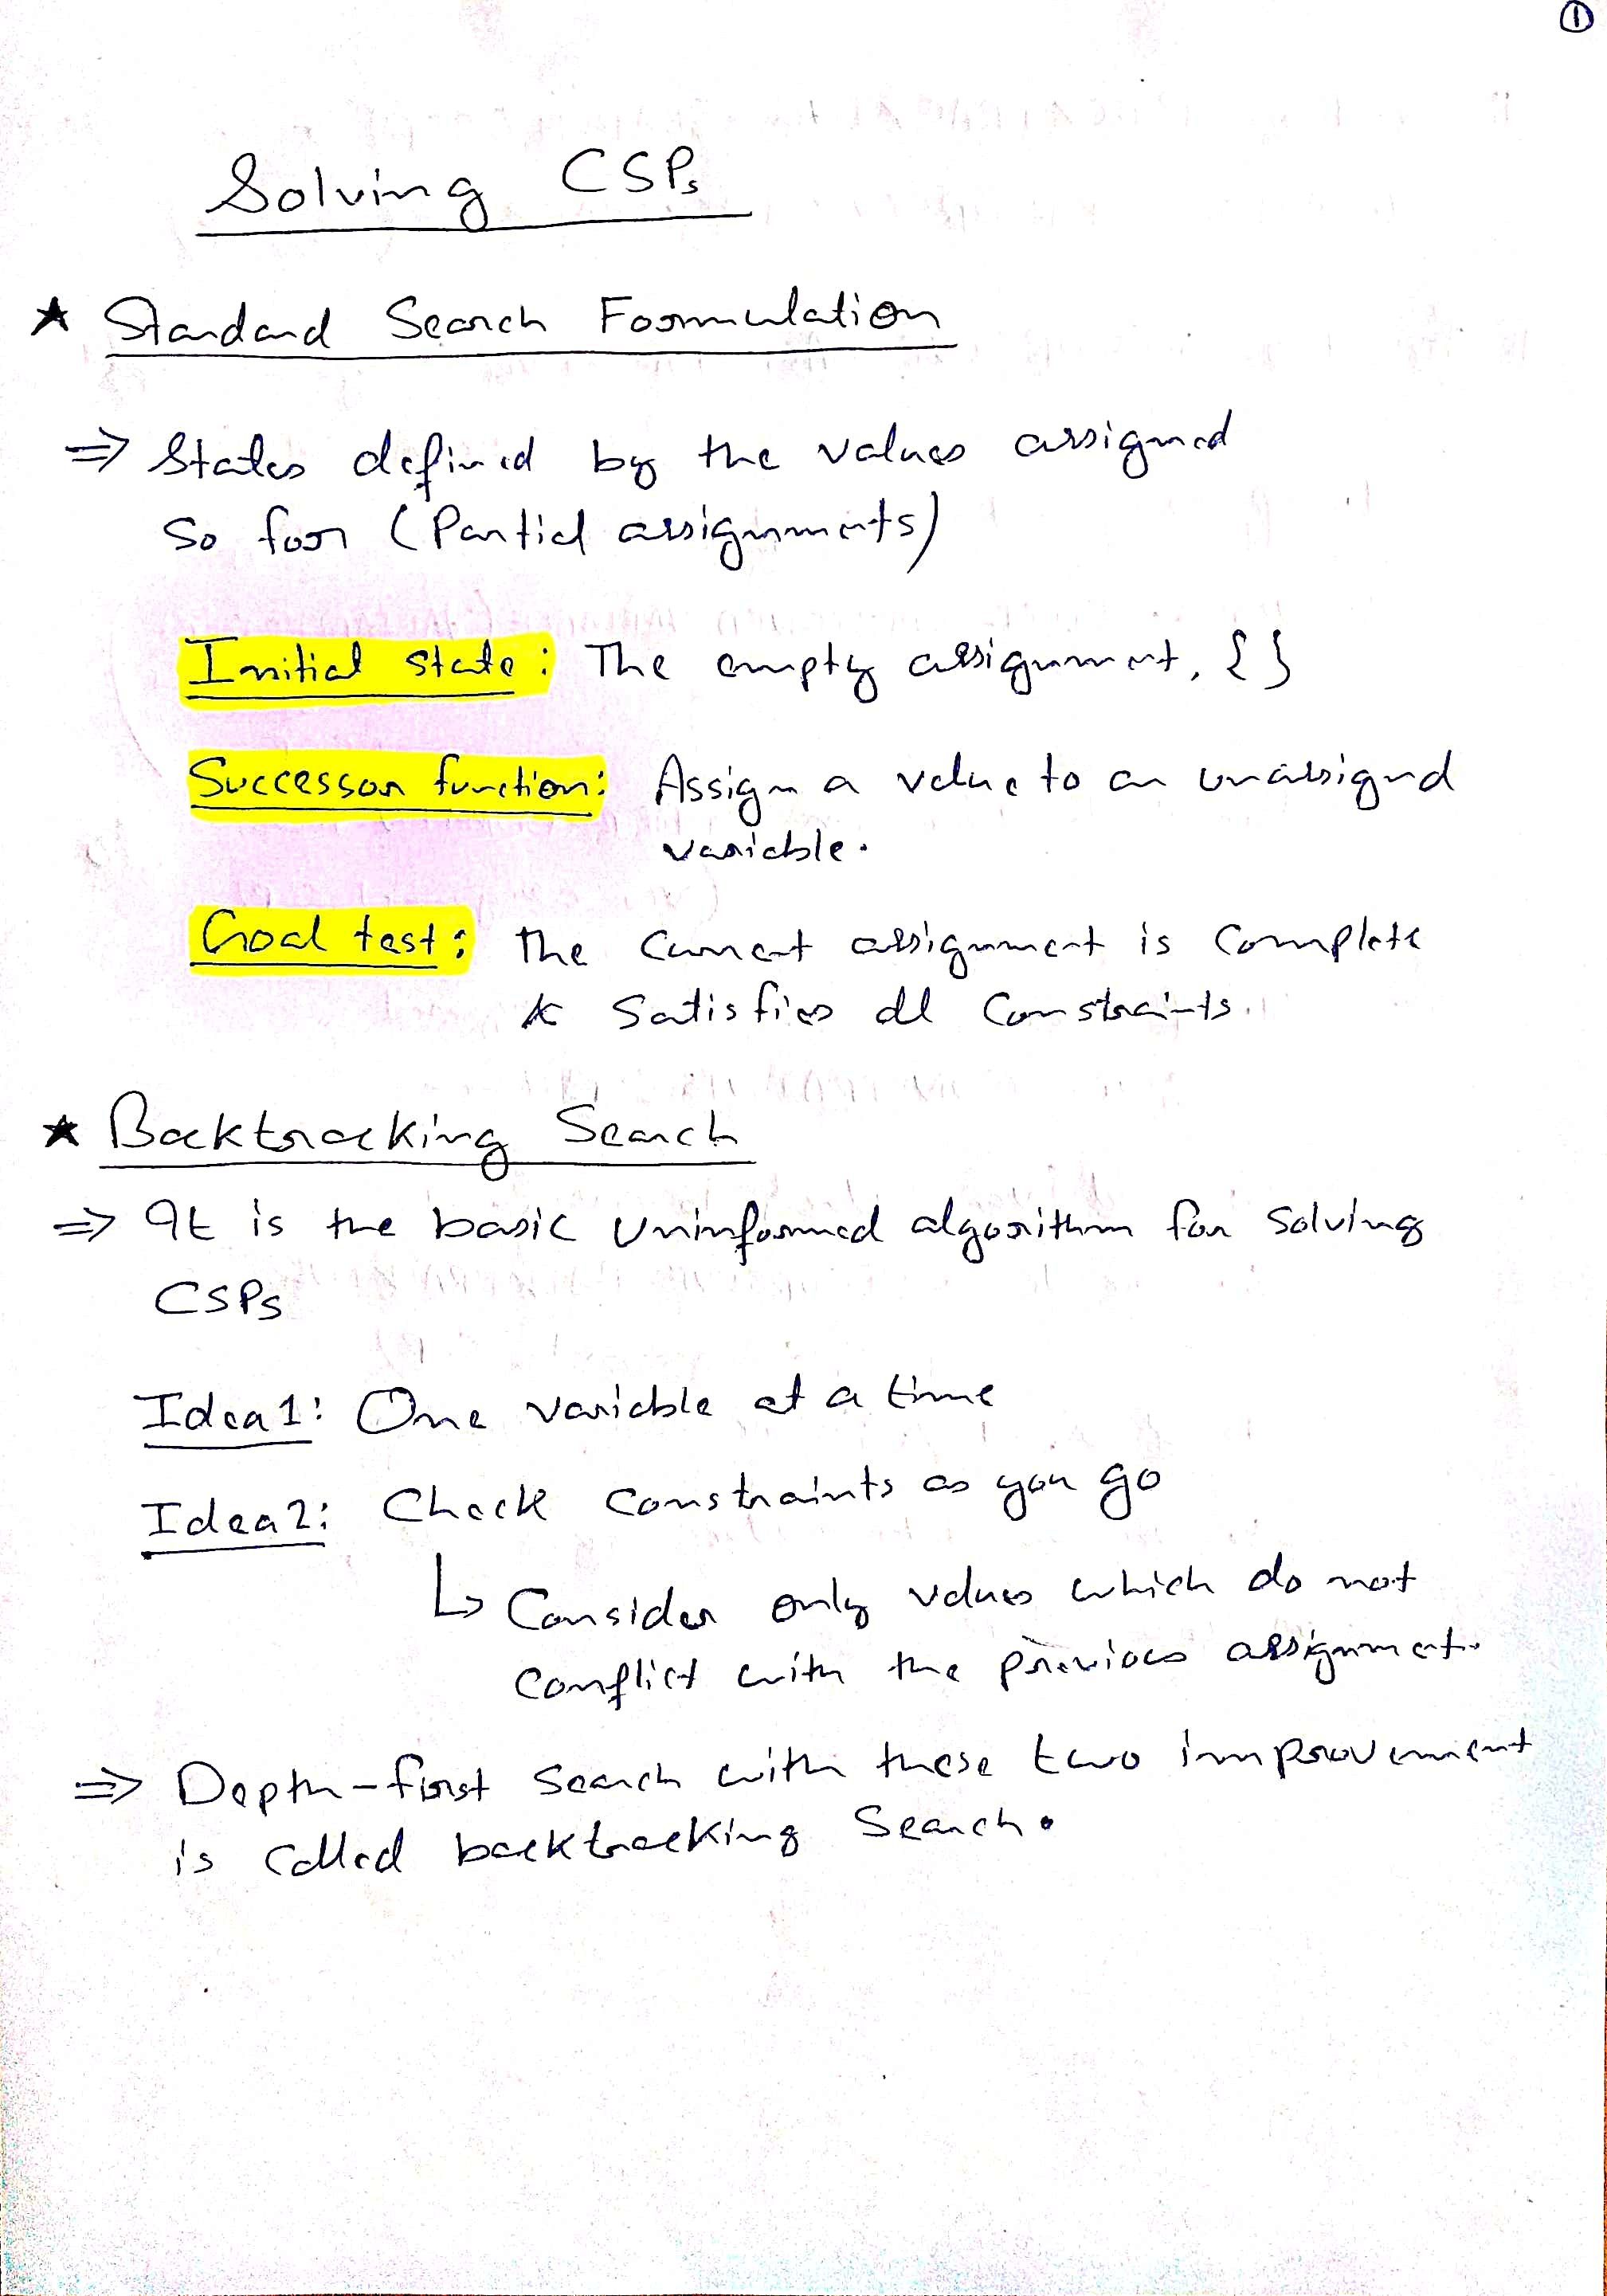 ①
Solving CSPs
★ Standard Search Formulation
⇒ States defined by the values assigned
So far (Partial assignments)
Initial state: The empty assignment, { }
Successor function: Assign a value to an unassigned
variable.
Goal test: The current assignment is complete
& Satisfies all Constraints.
★ Backtracking Search
⇒ It is the basic Uninformed algorithm for Solving
CSPs
Idea 1: One variable at a time
Idea 2: Check Constraints as you go
↳ Consider only values which do not
conflict with the previous assignment.
⇒ Depth-first Search with these two improvement
is called backtracking Search.